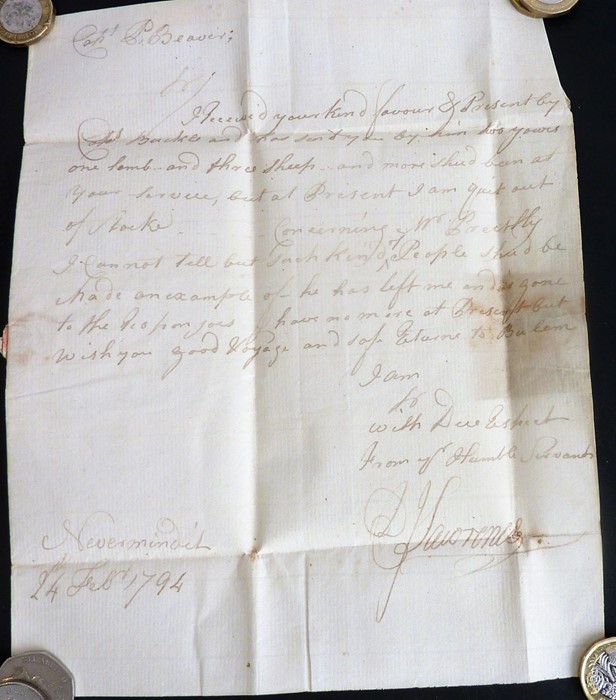 Capt. P. Beaver;
Sr
I Receiv'd your kind favour & Present by
Capt and has sent you by him two yowes
one lamb and three sheep and more shud ben at
your Service, but at Present I am quit out
of Stocke. Concerning Mr.
I Cannot tell but Such Kind of People shud be
Made an example of he has left me and is gone
to the I have no more at Present but
Wish you Good Voyage and Safe to Bulam
I am
Sr
With Due
From yr Humble Servant
J Lawrence
Nevermindit
24 Febr. 1794